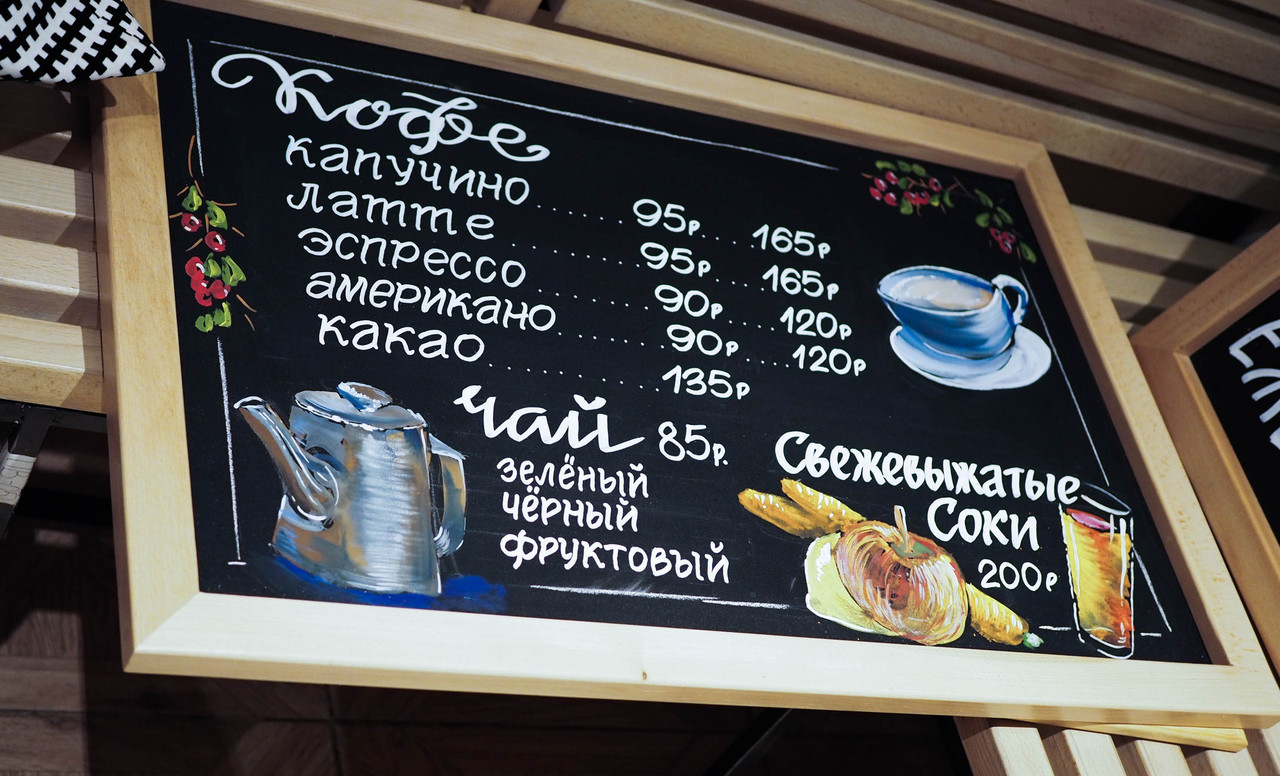 Кофе
капучино.......95р....165р
латте.......95р....165р
эспрессо.......90р....120р
американо.......90р....120р
какао.......135р
Чай 85р.
зелёный
чёрный
фруктовый
Свежевыжатые
Соки
200р